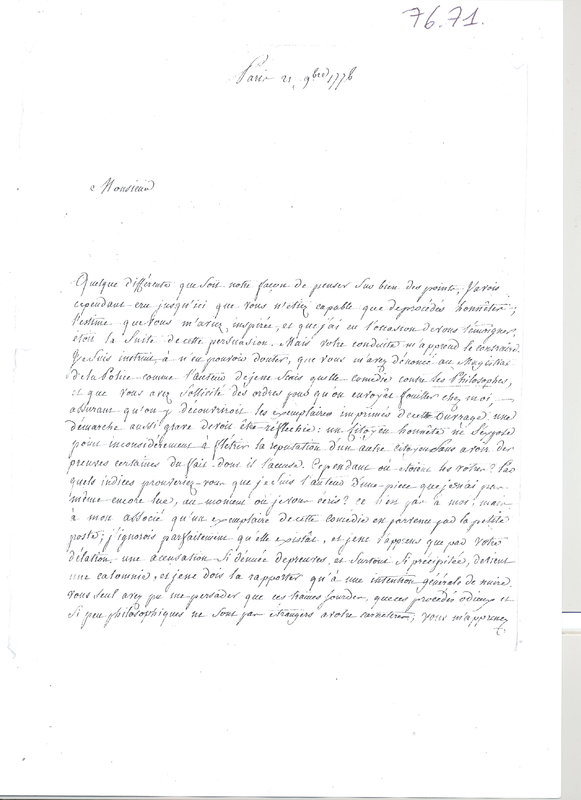 76.71.
Paris 21 9bre 1778
Monsieur
Quelque différente que soit notre façon de penser sur bien des points, j'avois
cependant cru jusqu'ici que vous n'étiez capable que de procédés honnêtes;
l'estime que vous m'aviez inspirée, et que j'ai eu l'occasion de vous témoigner,
étoit la suite de cette persuasion. Mais votre conduite m'apprend le contraire.
Je suis instruit, à n'en pouvoir douter, que vous m'avez dénoncé au Magistrat
de la Police comme l'auteur de je ne sais quelle comédie contre les Philosophes,
et que vous avez sollicité des ordres pour qu'on envoyât fouiller chez moi,
assurant qu'on y découvriroit les exemplaires imprimés de cette ouvrage. une
démarche aussi grave devoit être réfléchie: un citoyen honnête ne s'expose
point inconsidérément à flétrir la réputation d'un autre citoyen sans avoir des
preuves certaines du fait dont il l'accuse. Cependant où étoient les votres? Par
quels indices prouverez-vous que je suis l'auteur d'une pièce que je n'ai pas
même encore lue, au moment où je vous écris? ce n'est pas à moi, mais
à mon associé qu'un exemplaire de cette comédie est parvenu par la petite
poste; j'ignorois parfaitement qu'elle existât, et je ne l'apprens que par votre
délation. une accusation si dénuée de preuves, et surtout si précipitée, devient
une calomnie, et je ne dois la rapporter qu'à une intention générale de nuire.
vous seul avez pu me persuader que ces trames sourdes, que ces procédés odieux et
si peu philosophiques ne sont pas étrangers à votre caractère; vous m'apprenez